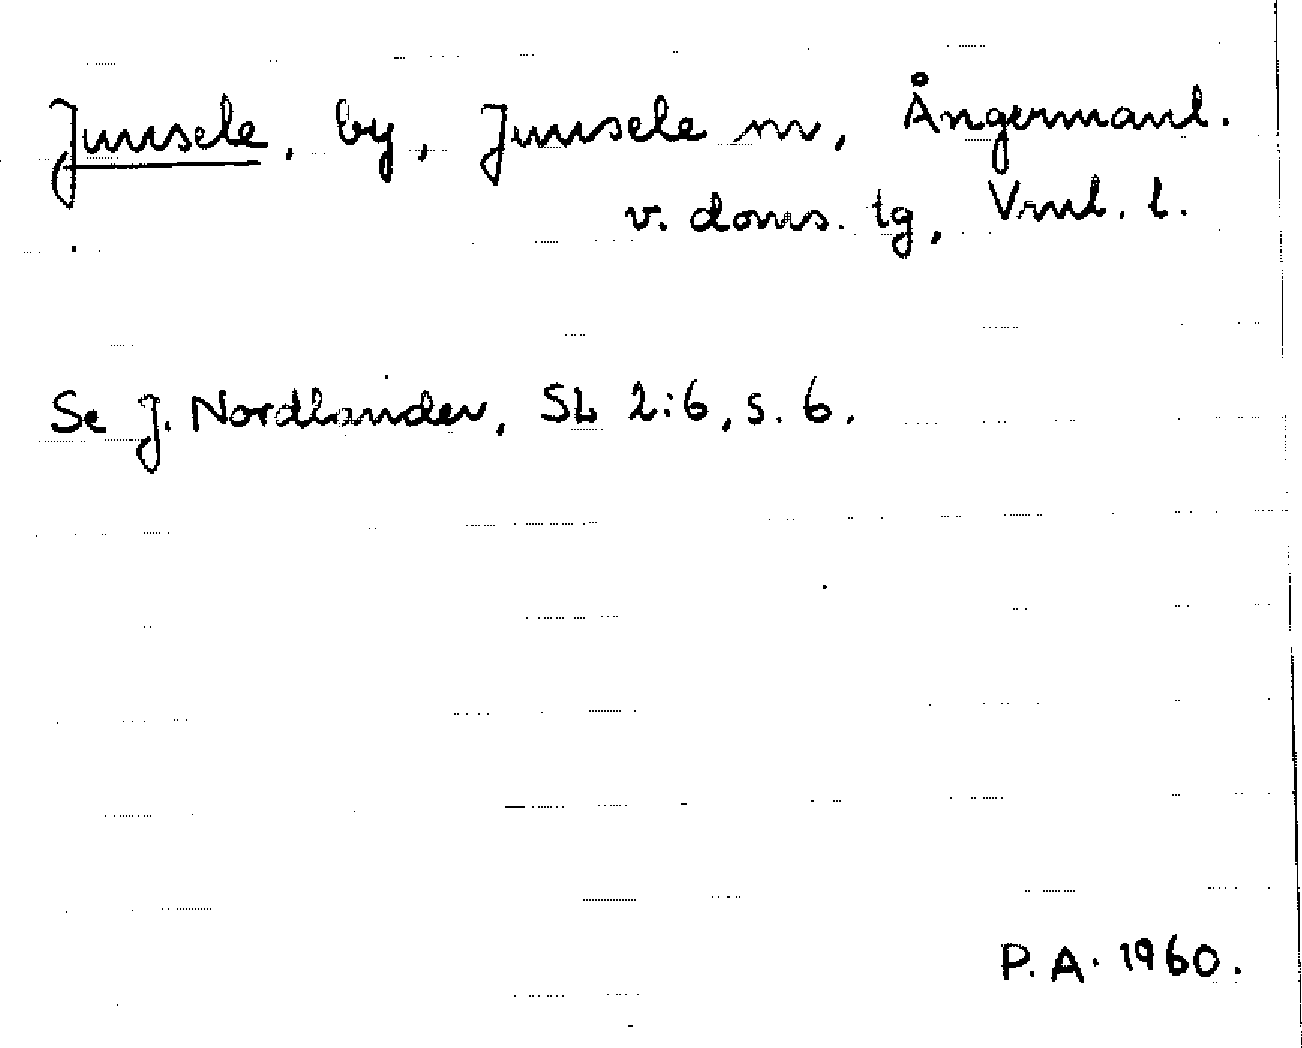 Junsele, by, Junsele sn, Ångermanl.
v. doms. tg, Vrnl. l.
Se J. Nordlander, SL 2:6, s. 6.
P.A. 1960.